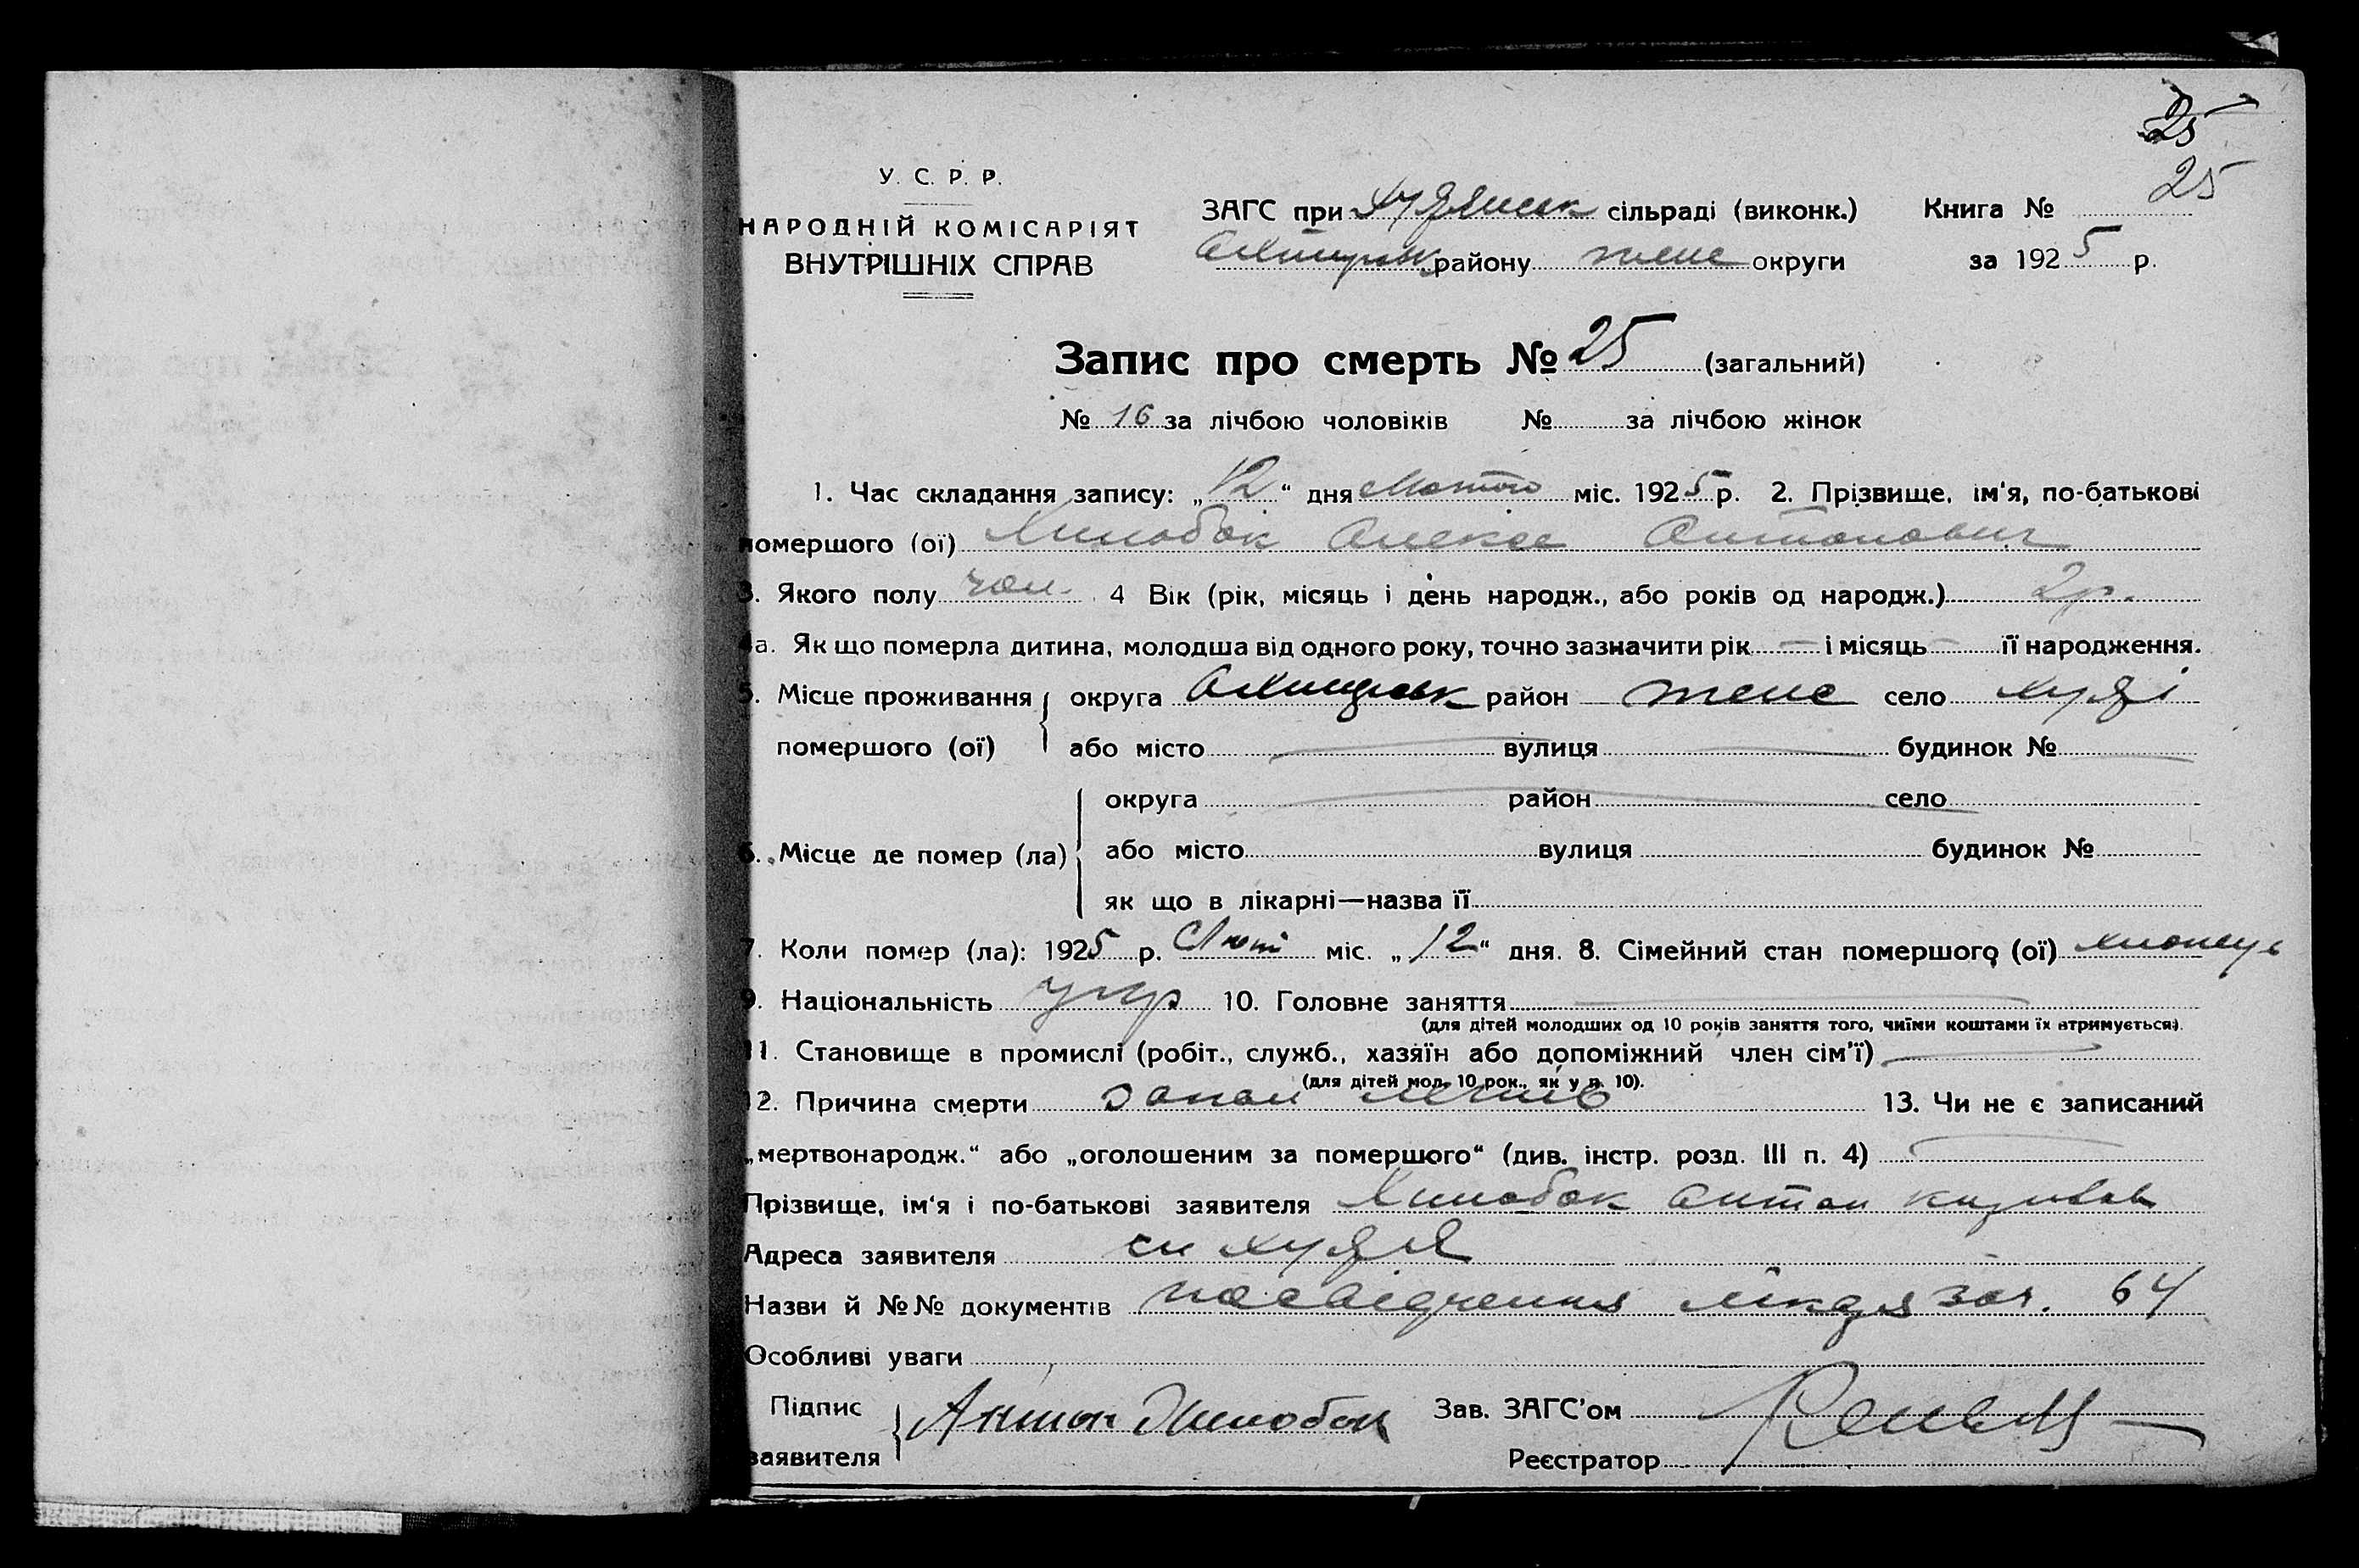 25
25
У. С. Р. Р.
НАРОДНІЙ КОМІСАРІЯТ
ВНУТРІШНІХ СПРАВ
ЗАГС при Худянськ сільраді (виконк.) Книга №
району теж округи за 1925 р.
Запис про смерть № 25 (загальний)
№ 16 за лічбою чоловіків № за лічбою жінок
1. Час складання запису: „12“ дня Лютого міс. 1925 р. 2. Прізвище, ім'я, по-батькові
помершого (ої) Хилобок Алексе Антонович
3. Якого полу чол. 4 Вік (рік, місяць і день народж., або років од народж.) 2 р.
4а. Як що померла дитина, молодша від одного року, точно зазначити рік — і місяць — її народження.
5. Місце проживання округа район теж село Худі
помершого (ої) або місто вулиця будинок №
округа район село
6. Місце де помер (ла) або місто вулиця будинок №
як що в лікарні—назва її
7. Коли помер (ла): 1925 р. Лют міс. „12“ дня. 8. Сімейний стан помершого (ої)
9. Національність укр 10. Головне заняття
(для дітей молодших од 10 років заняття того, чиїми коштами їх втримується).
11. Становище в промислі (робіт., служб., хазяїн або допоміжний член сім'ї)
(для дітей мол. 10 рок., як у п. 10).
12. Причина смерти запал легнів 13. Чи не є записаний
„мертвонародж.“ або „оголошеним за помершого“ (див. інстр. розд. III п. 4)
Прізвище, ім'я і по-батькові заявителя Хилобок Антон
Адреса заявителя
Назви й №№ документів посвідчення за ч. 64
Особливі уваги
Підпис Антон Хилобок Зав. ЗАГС'ом
заявителя Реєстратор